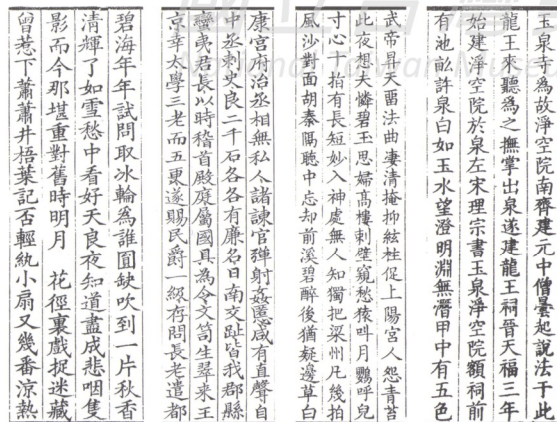 玉泉寺為故淨空院南齊建元中僧曇起說法于此
龍王來聽為之撫掌出泉遂建龍王祠晉天福三年
始建淨空院於泉左宋理宗書玉泉淨空院額祠前
有池畝許泉白如玉水望澄明淵無潛甲中有五色
武帝昇天留法曲淒清掩抑絃柱促上陽宮人怨青苔
此夜想夫憐碧玉思婦高樓刺壁窺愁猿叫月鸚呼兒
寸心十指有長短妙入神處無人知獨把梁州凡幾拍
風沙對面胡秦隔聽中忘却前溪碧醉後猶疑邊草白
康宮府治丞相無私人諸諫官彈射姦慝咸有直聲自
中丞刺史良二千石各各有廉名日南交趾皆我郡縣
蠻夷君長以時稽首殿庭屬國具為令文笥生翠來王
京幸太學三老而五更遂賜民爵一級存問長老遣都
碧海年年試問取冰輪為誰圓缺吹到一片秋香
清輝了如雪愁中看好天良夜知道盡成悲咽隻
影而今那堪重對舊時明月 花徑裏戲捉迷藏
曾惹下蕭蕭井梧葉記否輕紈小扇又幾番涼熱